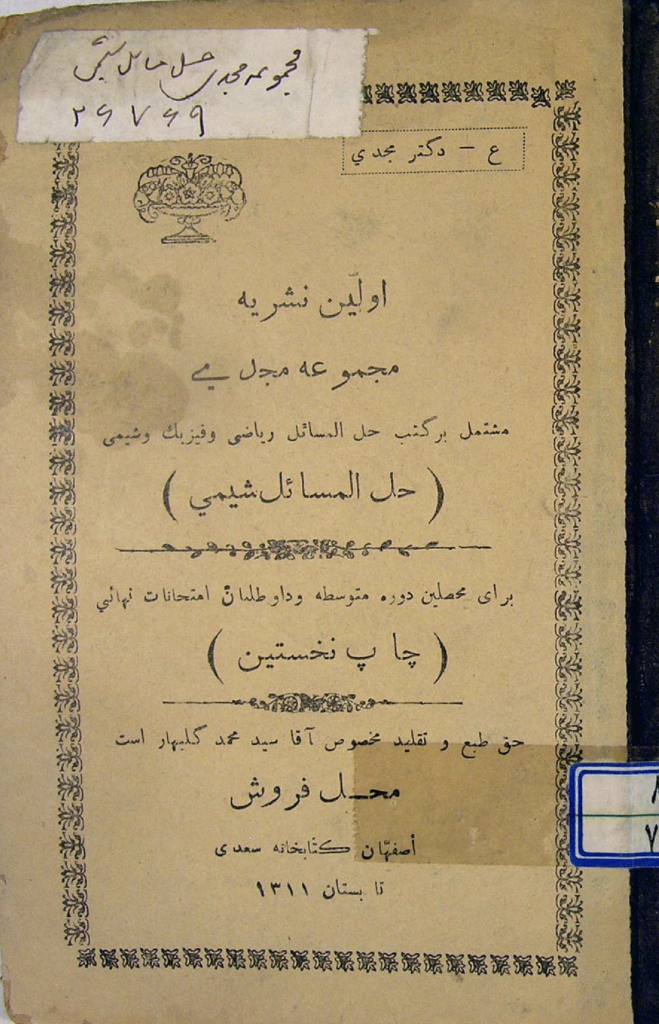 مجموعه مجدی حل مسائل شیمی
۲۶۷۶۹
ع - دکتر مجدي
اولین نشریه
مجموعه مجدي
مشتمل بر کتب حل المسائل ریاضی وفیزیك وشیمی
( حل المسائل شیمي )
برای محصلین دوره متوسطه وداوطلبان امتحانات نهائي
( چاپ نخستین )
حق طبع و تقلید مخصوص آقا سید محمد گلبهار است
محل فروش
أصفهان کتابخانه سعدی
تابستان ۱۳۱۱
۸
۷